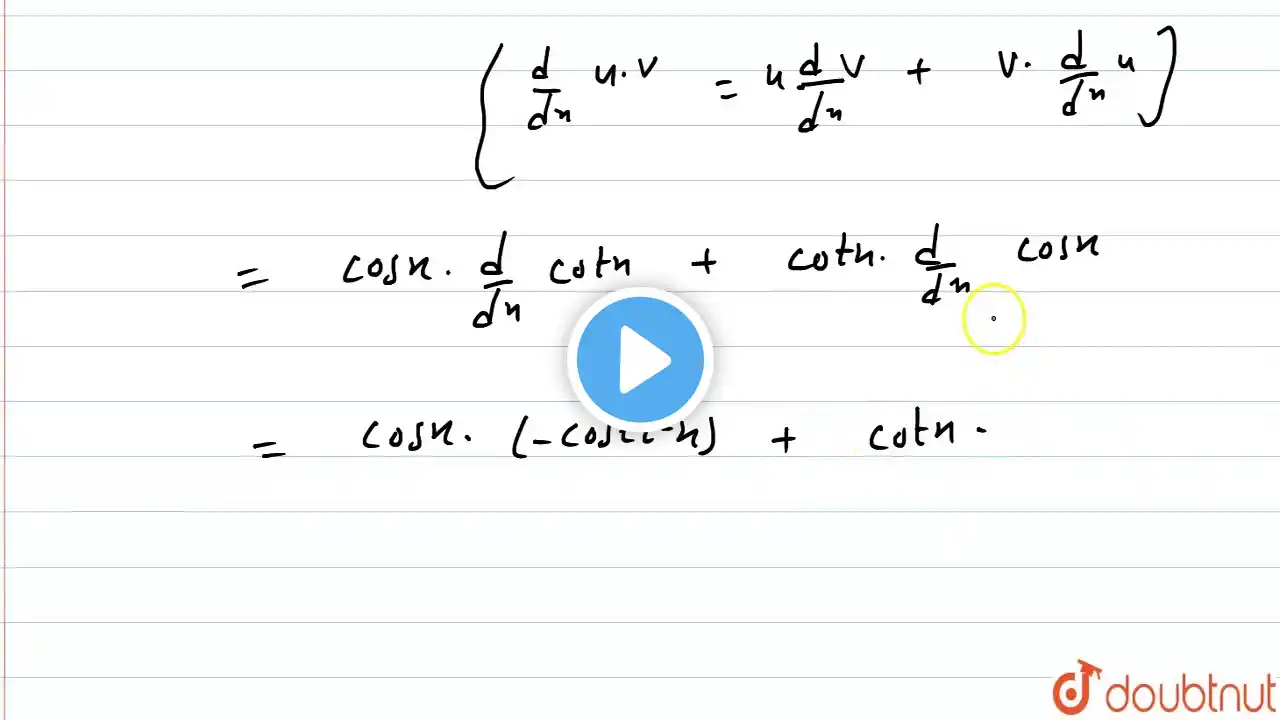 [ d/dx u.v = u d/dx v + v. d/dx u ]
= cosx. d/dx cotx + cotx. d/dx cosx
= cosx. (-cosec²x) + cotx.
doubtnut